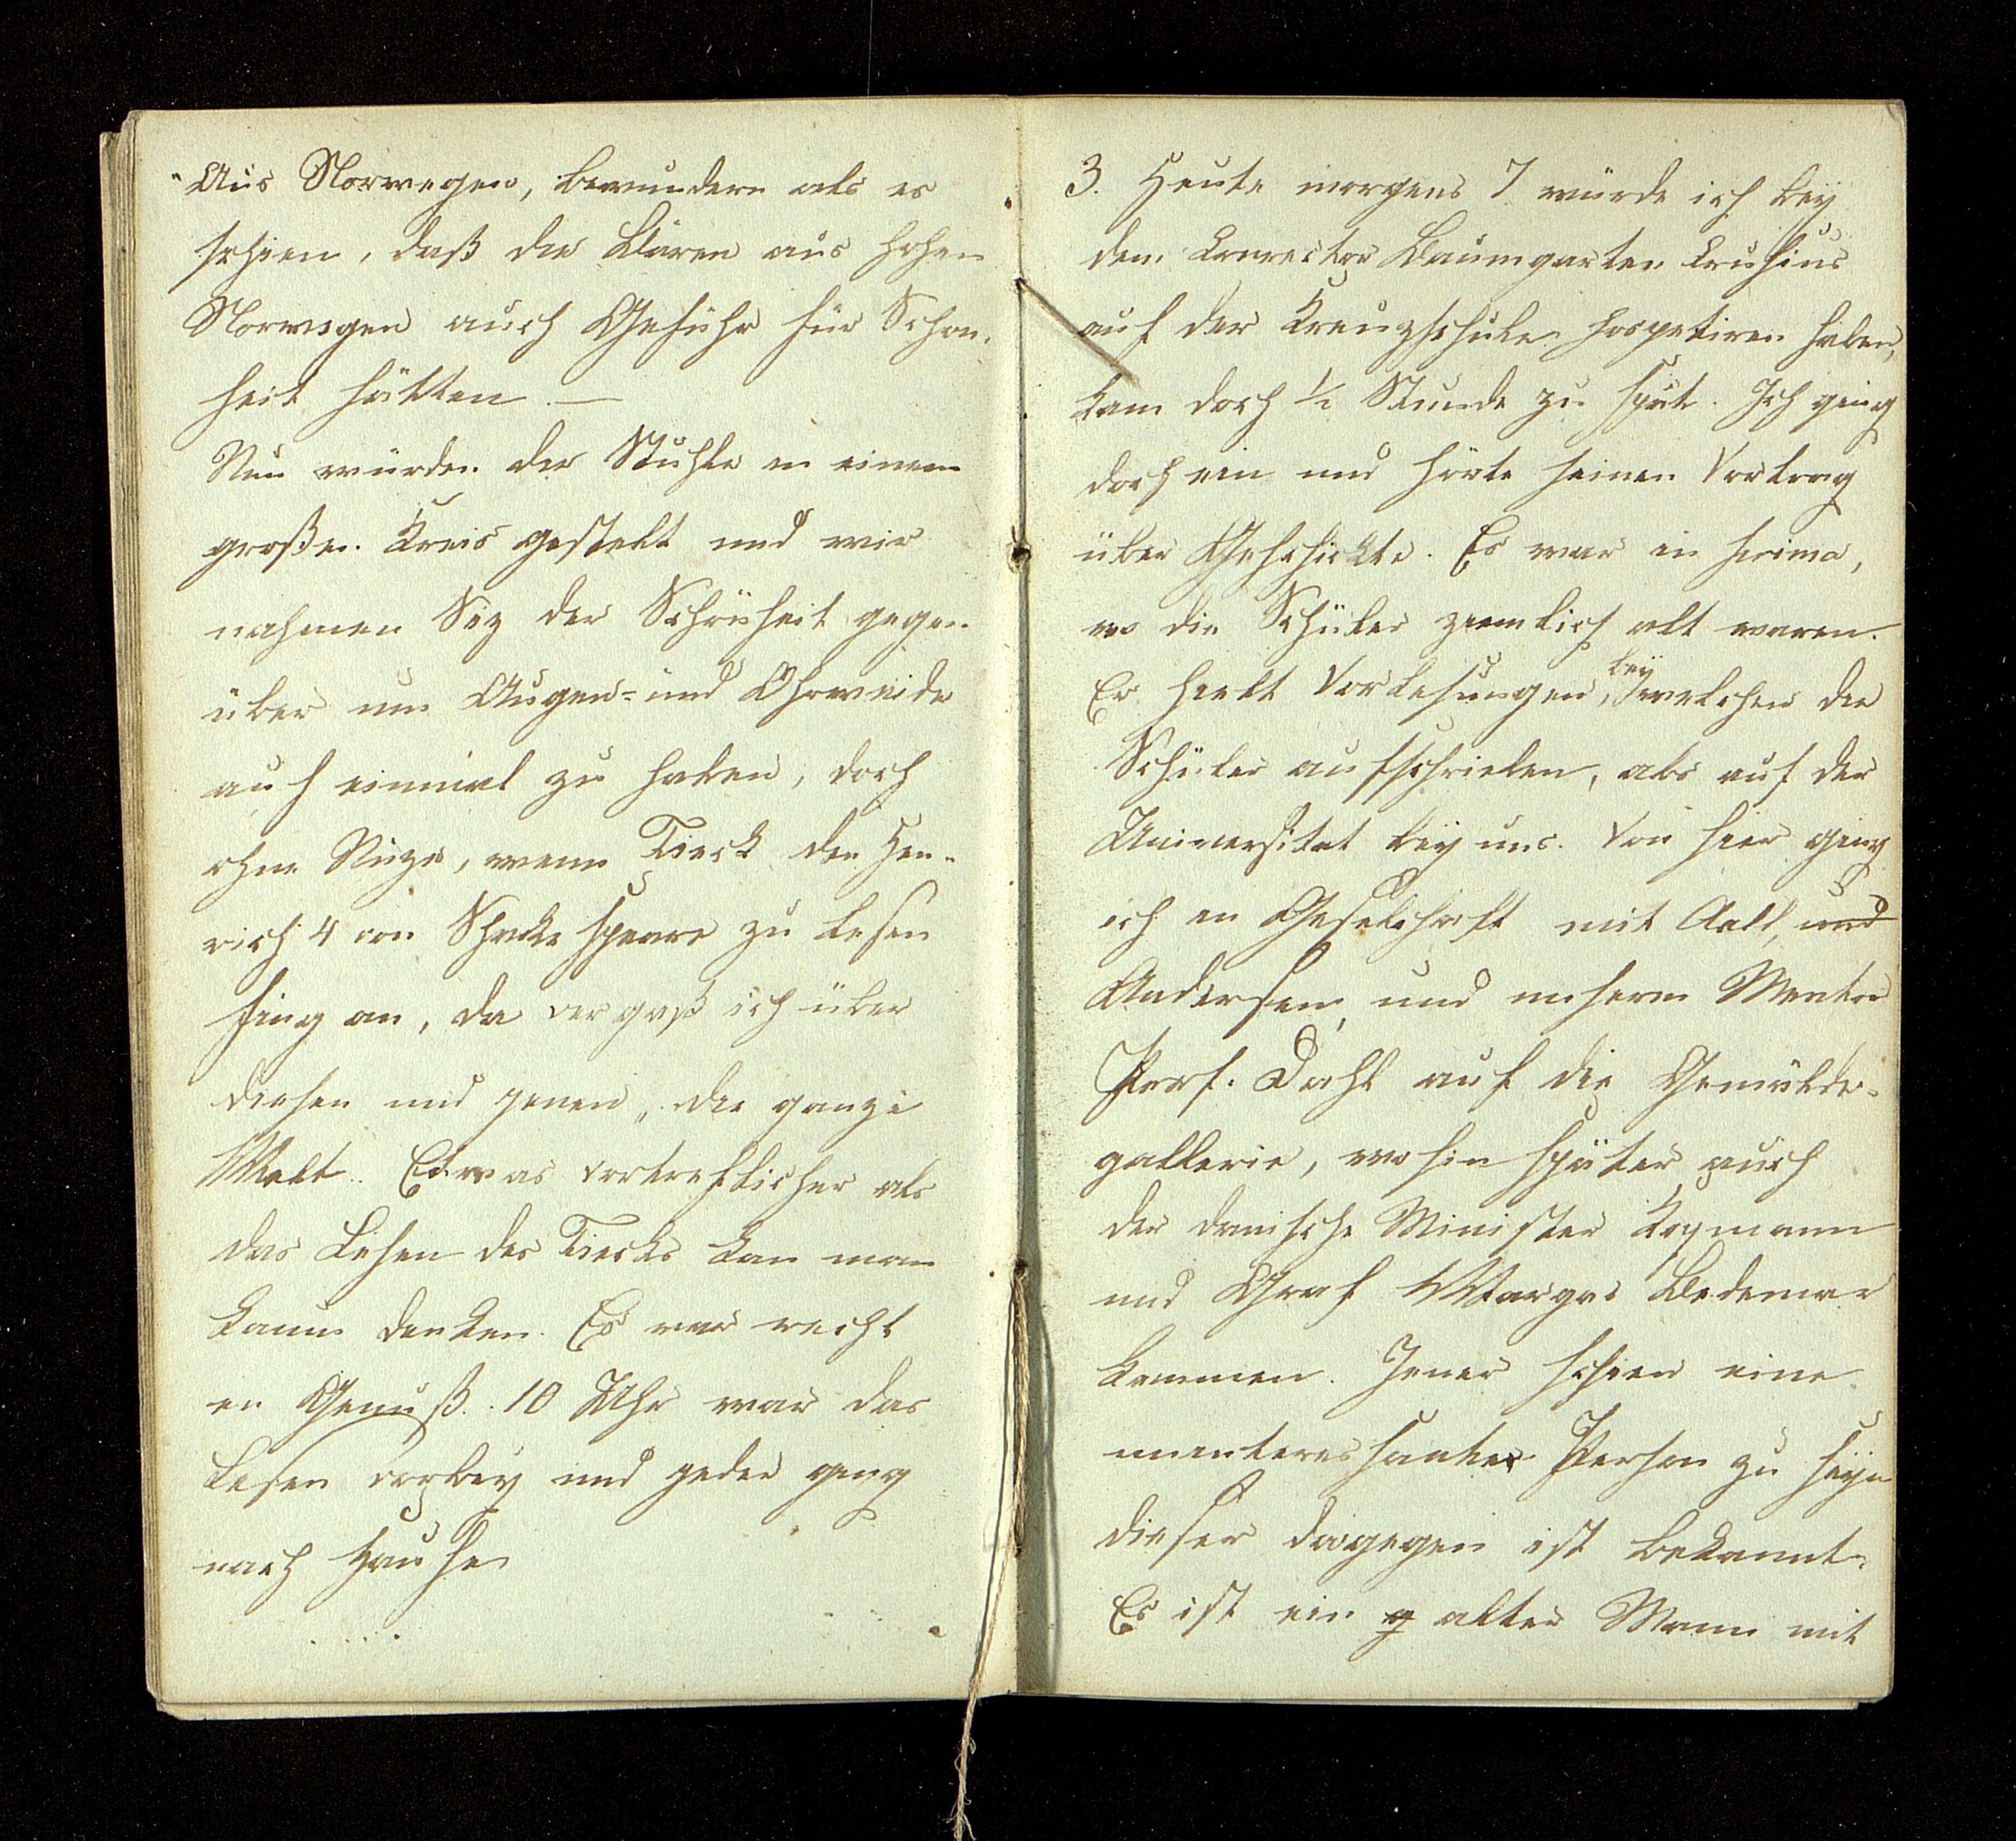 Aus Norwegen, bewundern als es
schien, daß die Bären aus hohen
Norwegen auch Gefühl für Schon-
heit hätten. —
Nun würden die Stuhle in einem
großen Kreis gestelt und wir
nahmen Siz der Schönheit gegen
über um Augen- und Ohrweide
auf einmal zu haben, doch
ohne Nuze, wenn Tieck den Hen-
rich 4 von Shakespeare zu lesen
fing an, da vergaß ich über
diesen und genen, die ganze
Welt. Etwas vortreflicher als
das Lesen des Tiecks kan man
kaum denken. Es war recht
en Genuß. 10 Uhr war das
Lesen vorbey und geder ging
nach Hause
3. Heute morgens 7 würde ich bey
dem Conrector Baumgarten Crusius
auf der Kreuzschule hospetiren haben,
kam doch ½ Stunde zu spät. Ich ging
doch ein und hörte seinen Vortrag
über Geschichte. Es war in prima,
wo die Schüler ziemlich alt waren.
Er hielt Vorlesungen, bey welchen die
Schüler aufschrieben, als auf der
Universitat bey uns. Von hier ging
ich in Geselschaft mit Aall, und
Andersen, und unserm Mentor
Prof. Dahl auf die Gemälde-
gallerie, wohin später auch
der danische Minister Koymann
und Graf Vargas Bedemar
kammen. Jener schien eine
uninteressante Person zu seyn
dieser dagegen ist bekannt.
Es ist ein g alter Mann mit